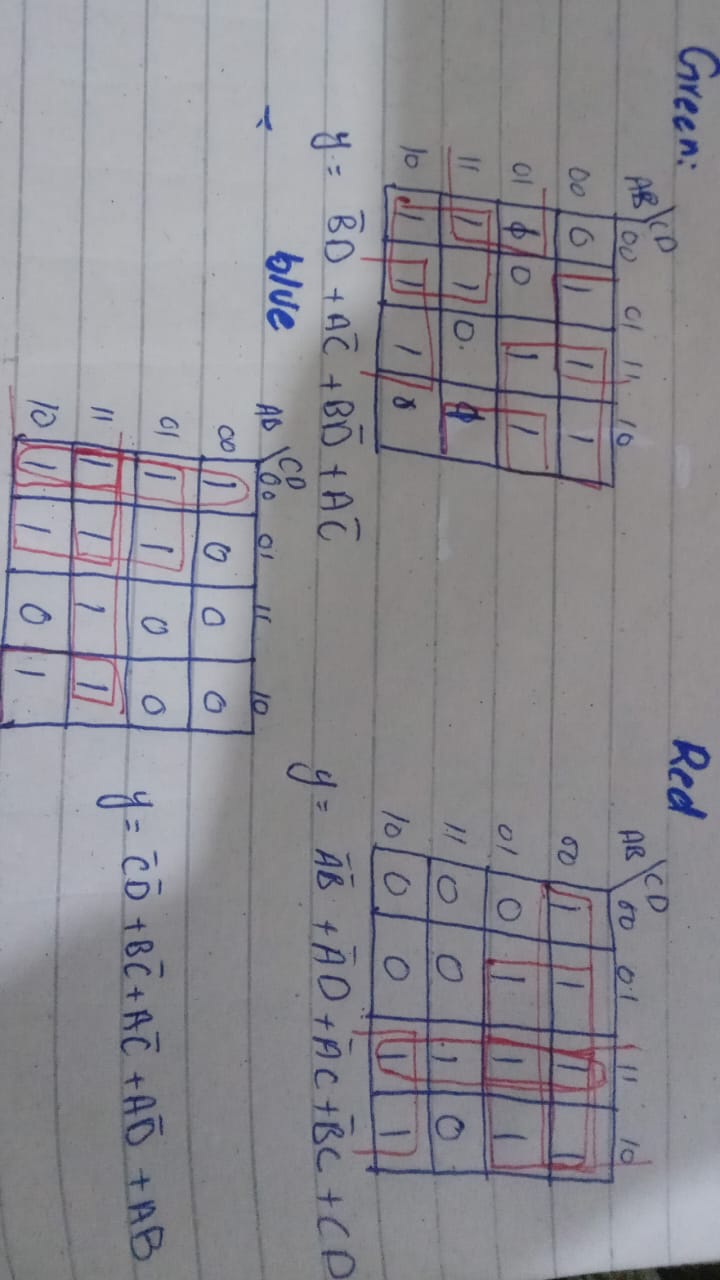 Green:
AB\CD 00 01 11 10
00 0 1 1 1
01 1 0 1 1
11 1 1 0 1
10 1 1 1 0
y = B̅D + AC̅ + BD̅ + AC̅
Red
AB\CD 00 01 11 10
00 1 1 1 1
01 0 1 1 1
11 0 0 1 0
10 0 0 1 1
y = A̅B̅ + A̅D + A̅C + B̅C + CD
blue
AB\CD 00 01 11 10
00 1 0 0 0
01 1 1 0 0
11 1 1 1 1
10 1 1 0 1
y = C̅D̅ + BC̅ + AC̅ + AD̅ + AB